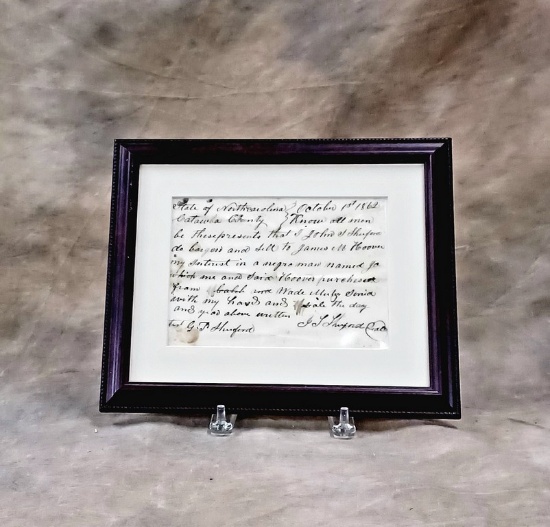 State of Northcarolina } October 1st 1862
Catawba County } Know all men
be these presents that I John S Shuford
do bargen and sell to James M Hoover
my intrist in a negro man named Jo
which me and Said Hoover purchased
from and Wade
with my hand and the day
and year above written
G. P. Shuford J. S. Shuford